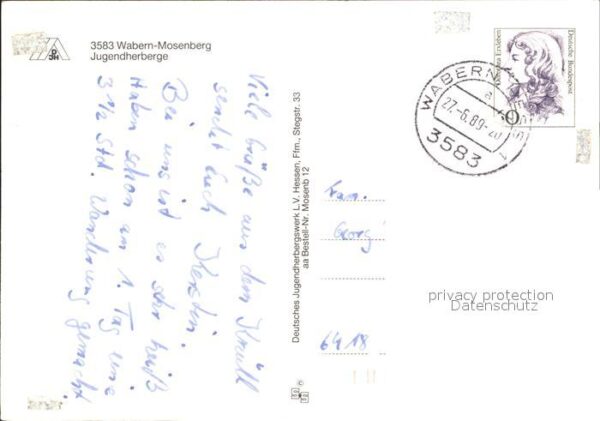 3583 Wabern-Mosenberg
Jugendherberge
DJH
Viele Grüße aus dem
sendet Euch Kerstin.
Bei uns ist es sehr heiß
Haben schon am 1. Tag eine
3 1/2 Std. Wanderung gemacht
Deutsches Jugendherbergswerk L.V. Hessen, Ffm., Stegstr. 33
aa Bestell-Nr. Mosenb 12
Dorothea Erxleben
Deutsche Bundespost
60
WABERN
27.-6.89-20
3583
Fam.
Georg
6418
privacy protection
Datenschutz